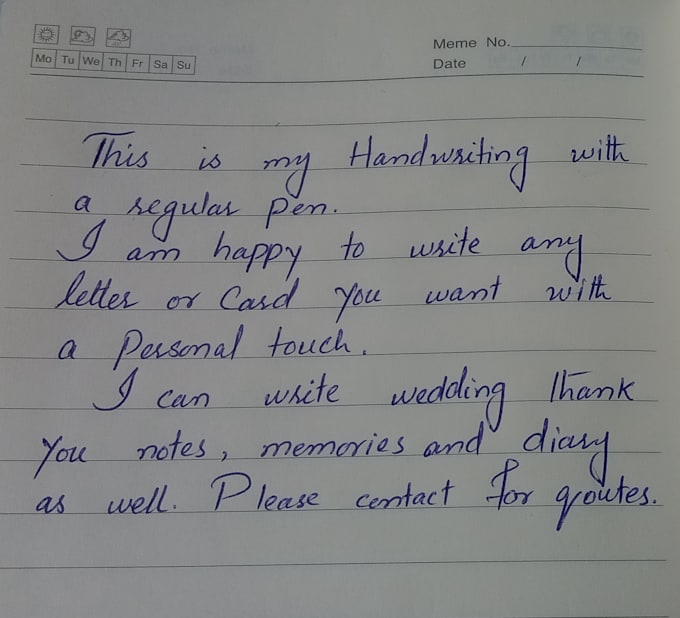 Meme No.
Mo Tu We Th Fr Sa Su
Date / /
This is my Handwriting with
a regular pen.
I am happy to write any
letter or Card you want with
a Personal touch.
I can write wedding thank
you notes, memories and diary
as well. Please contact for qoutes.